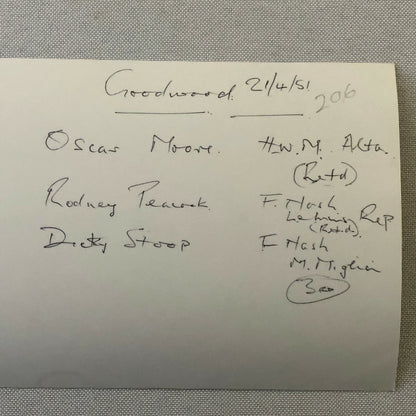 Goodwood. 21/4/51
206
Oscar Moore. H.W.M. Alta.
(Retd)
Rodney Peacock F. Nash
Le Mans Rep
(Retd).
Dicky Stoop F Nash
M. Miglia
3rd